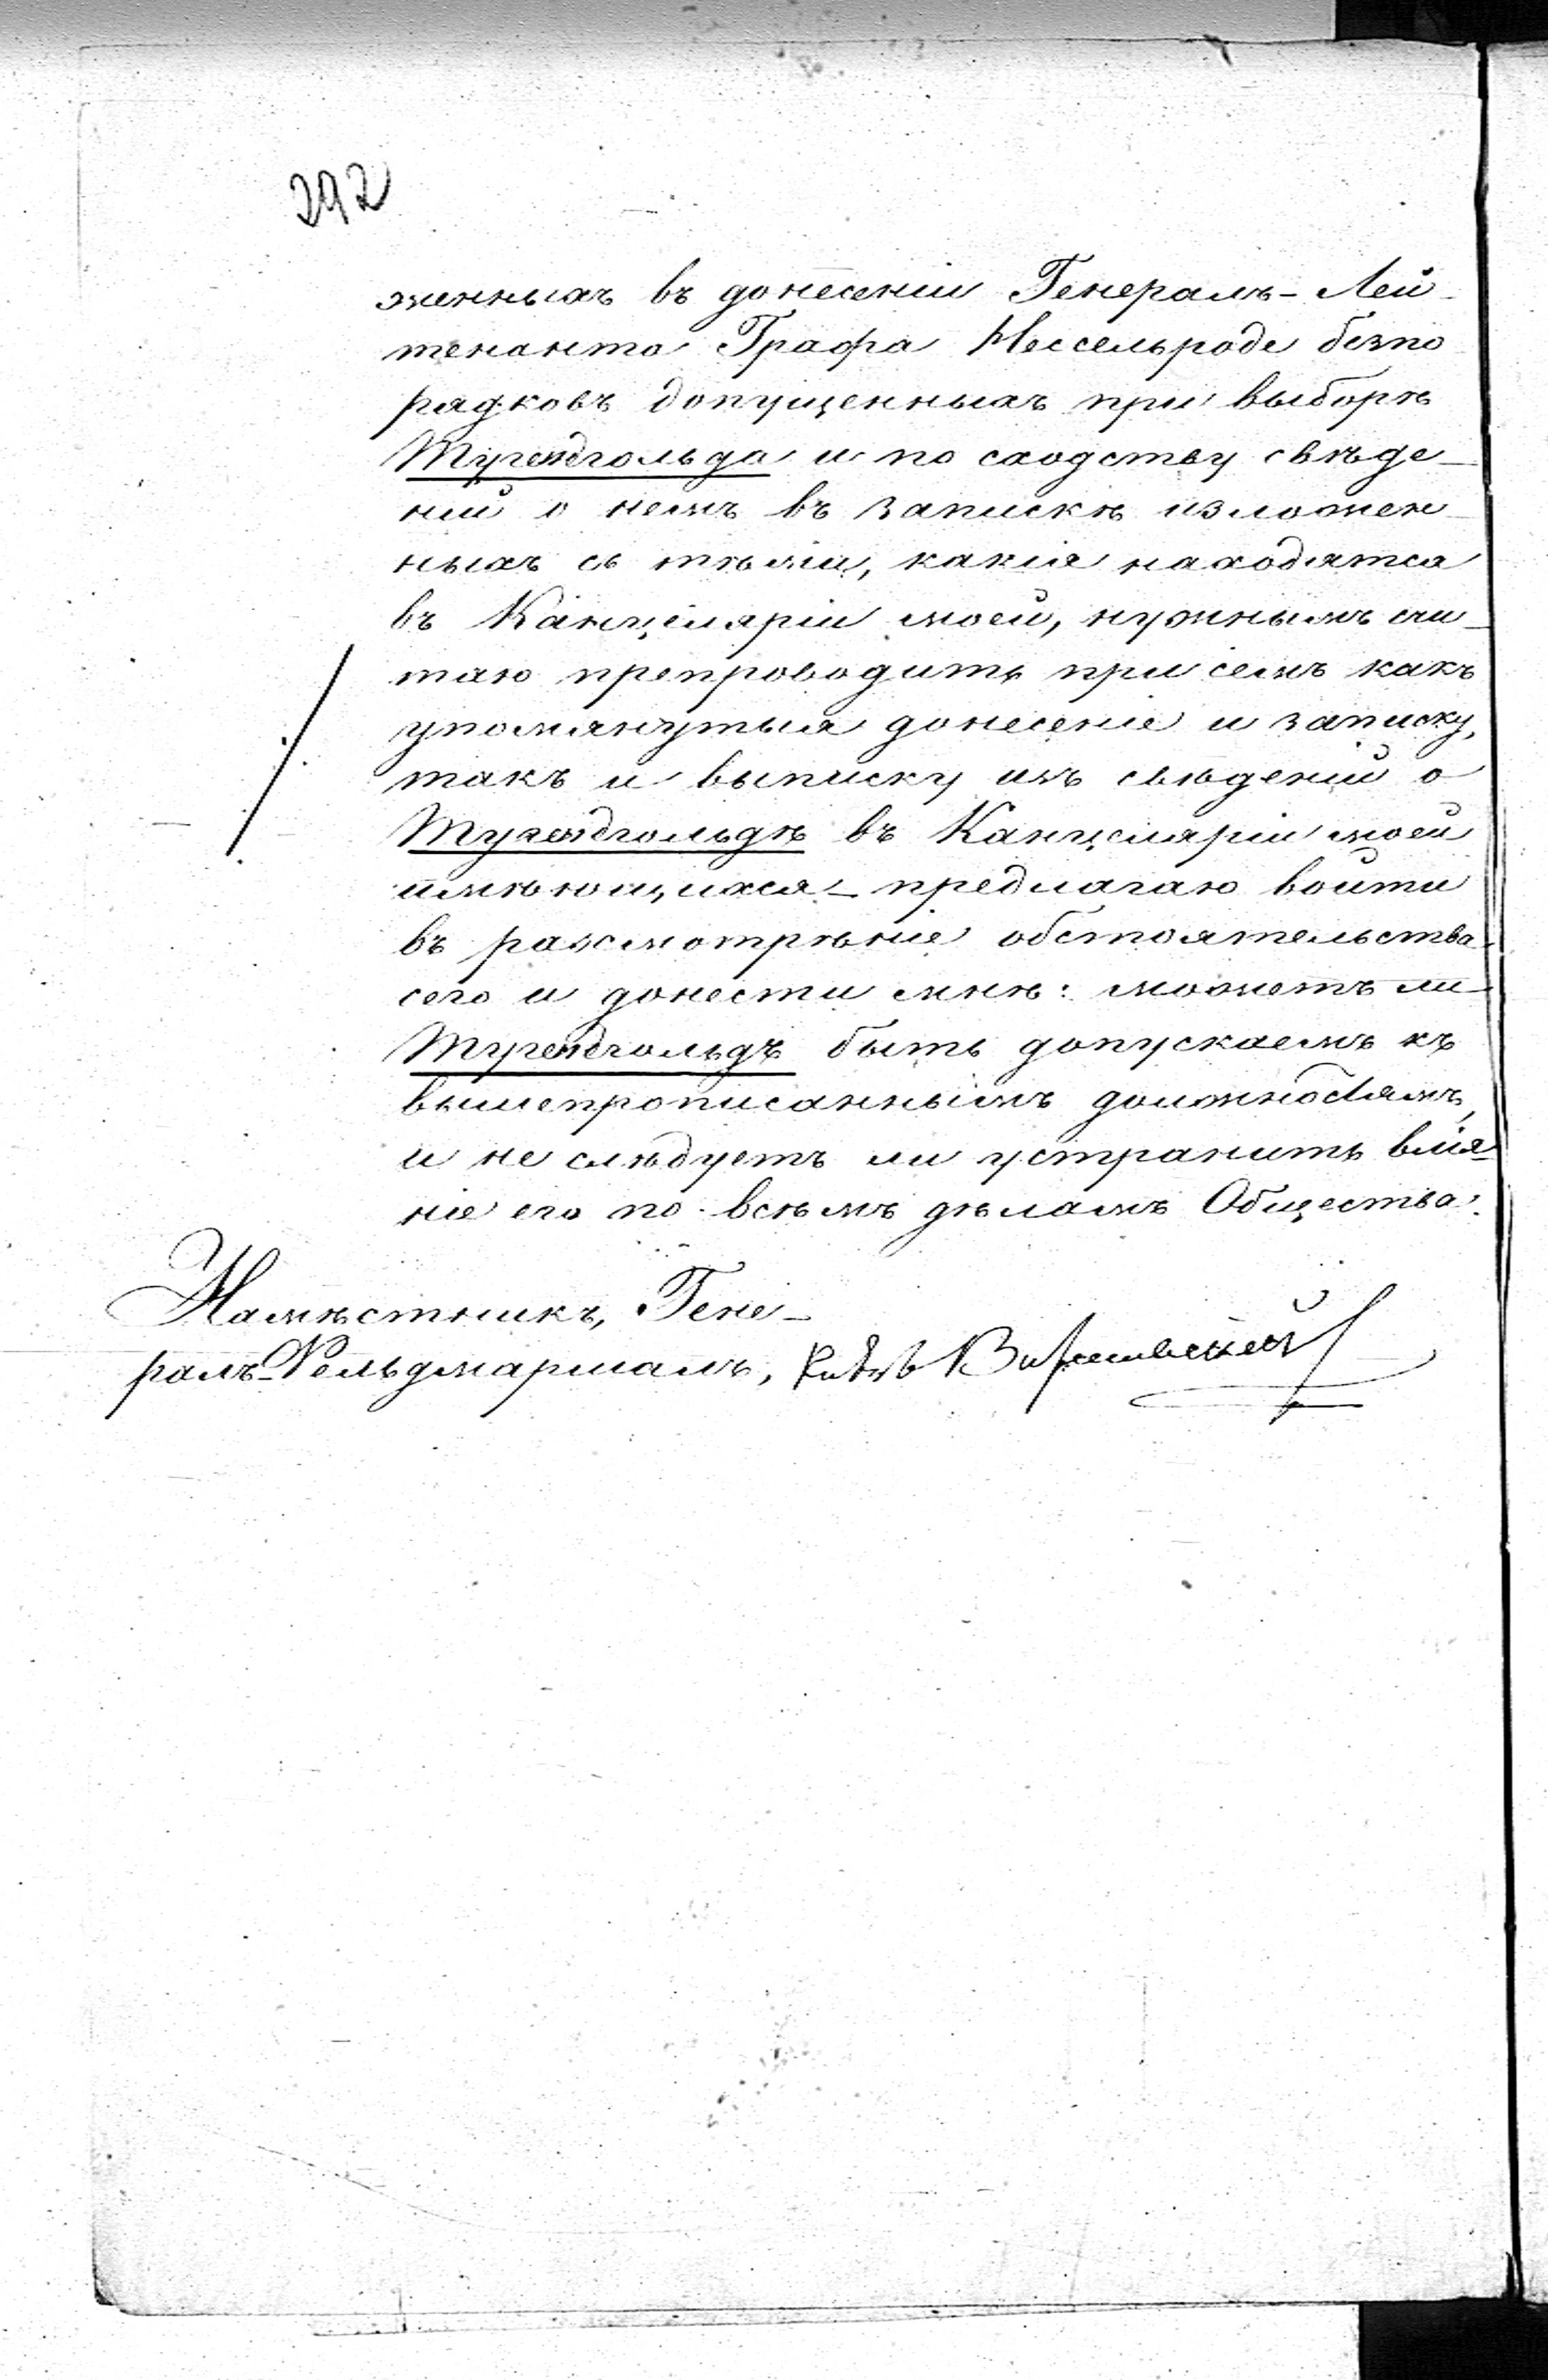 292
женныхъ въ донесеніи Генералъ-Лей-
тенанта Графа Нессельроде безпо
рядковъ допущенныхъ при выборѣ
Тугендгольда и по сходству свѣде-
ній о немъ въ запискѣ изложен-
ныхъ съ тѣми, какія находятся
въ Канцеляріи моей, нужнымъ счи-
таю препроводить при семъ какъ
упомянутыя донесеніе и записку,
такъ и выписку изъ свѣдѣній о
Тугендгольдѣ въ Канцеляріи моей
имѣющихся – предлагаю войти
въ разсмотрѣніе обстоятельства
сего и донести мнѣ: можетъ ли
Тугендгольдъ быть допускаемъ къ
вышепрописаннымъ должностямъ,
и не слѣдуетъ ли устранить влія-
ніе его по всѣмъ дѣламъ Общества.
Намѣстникъ, Гене-
ралъ-Фельдмаршалъ, Князь Варшавскій